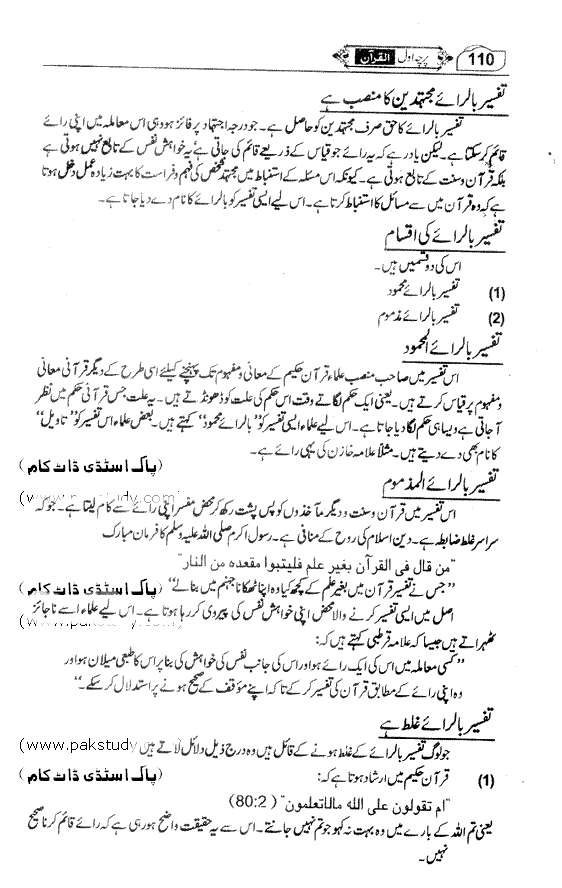 110 پرچہ اول القرآن
تفسیر بالرائے مجتہدین کا منصب ہے
تفسیر بالرائے کا حق صرف مجتہدین کو حاصل ہے۔ جو درجہ اجتہاد پر فائز ہو وہی اس معاملہ میں اپنی رائے
قائم کرسکتا ہے۔ لیکن یاد رہے کہ یہ رائے جو قیاس کے ذریعے قائم کی جاتی ہے یہ خواہش نفس کے تابع نہیں ہوتی ہے
بلکہ قرآن و سنت کے تابع ہوتی ہے۔ کیونکہ اس مسئلہ کے استنباط میں مجتہد شخص کی فہم و فراست کا بہت زیادہ عمل دخل ہوتا
ہے کہ وہ قرآن میں سے مسائل کا استنباط کرتا ہے۔ اس لیے ایسی تفسیر کو بالرائے کا نام دے دیا جاتا ہے۔
تفسیر بالرائے کی اقسام
اس کی دو قسمیں ہیں۔
(1) تفسیر بالرائے محمود
(2) تفسیر بالرائے مذموم
تفسیر بالرائے المحمود
اس تفسیر میں صاحب منصب علماء قرآن حکیم کے معانی و مفہوم تک پہنچنے کیلئے اسی طرح کے دیگر قرآنی معانی
و مفہوم پر قیاس کرتے ہیں۔ یعنی ایک حکم لگاتے وقت اس حکم کی علت کو ڈھونڈتے ہیں۔ یہ علت جس قرآنی حکم میں نظر
آ جاتی ہے ویسا ہی حکم لگا دیا جاتا ہے۔ اس لیے علماء ایسی تفسیر کو ”بالرائے محمود“ کہتے ہیں۔ بعض علماء اس تفسیر کو ”تاویل“
کا نام بھی دے دیتے ہیں۔ مثلاً علامہ خازن کی یہی رائے ہے۔ (پاک اسٹڈی ڈاٹ کام)
تفسیر بالرائے المذموم (www.pakstudy.com)
اس تفسیر میں قرآن و سنت و دیگر مآخذوں کو پس پشت رکھ کر محض مفسر اپنی رائے سے کام لیتا ہے۔ جو کہ
سراسر غلط ضابطہ ہے۔ دین اسلام کی روح کے منافی ہے۔ رسول اکرم صلی اللہ علیہ وسلم کا فرمان مبارک
"من قال فی القرآن بغیر علم فلیتبوا مقعده من النار"
”جس نے تفسیر قرآن میں بغیر علم کے کچھ کہا وہ اپنا ٹھکانا جہنم میں بنا لے“ (پاک اسٹڈی ڈاٹ کام)
اصل میں ایسی تفسیر کرنے والا محض اپنی خواہش نفس کی پیروی کر رہا ہوتا ہے۔ اس لیے علماء اسے ناجائز
ٹھہراتے ہیں جیسا کہ علامہ قرطبی کہتے ہیں کہ: (www.pakstudy.com)
”کسی معاملہ میں اس کی ایک رائے ہو اور اس کی جانب نفس کی خواہش کی بنا پر اس کا طبعی میلان ہو اور
وہ اپنی رائے کے مطابق قرآن کی تفسیر کرے تاکہ اپنے مؤقف کے صحیح ہونے پر استدلال کر سکے۔“
تفسیر بالرائے غلط ہے
جو لوگ تفسیر بالرائے کے غلط ہونے کے قائل ہیں وہ درج ذیل دلائل لاتے ہیں (www.pakstudy
(1) قرآن حکیم میں ارشاد ہوتا ہے کہ: (پاک اسٹڈی ڈاٹ کام)
"ام تقولون علی الله مالاتعلمون" (80:2)
یعنی تم اللہ کے بارے میں وہ بہت نہ کہو جو تم نہیں جانتے۔ اس سے یہ حقیقت واضح ہو رہی ہے کہ رائے قائم کرنا صحیح
نہیں۔